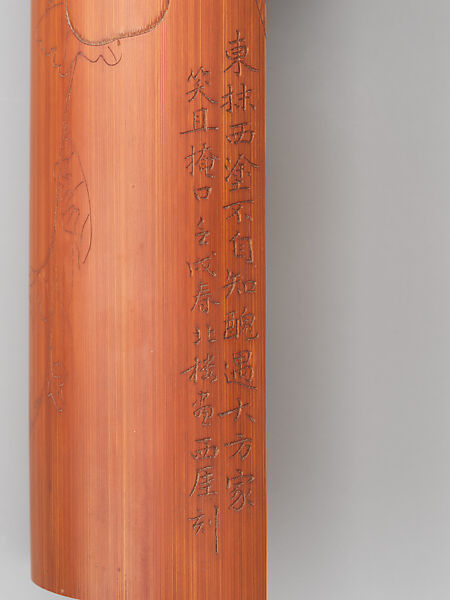 東抹西塗不自知醜遇大方家
笑且掩口壬戌春北楼畫西厓刻